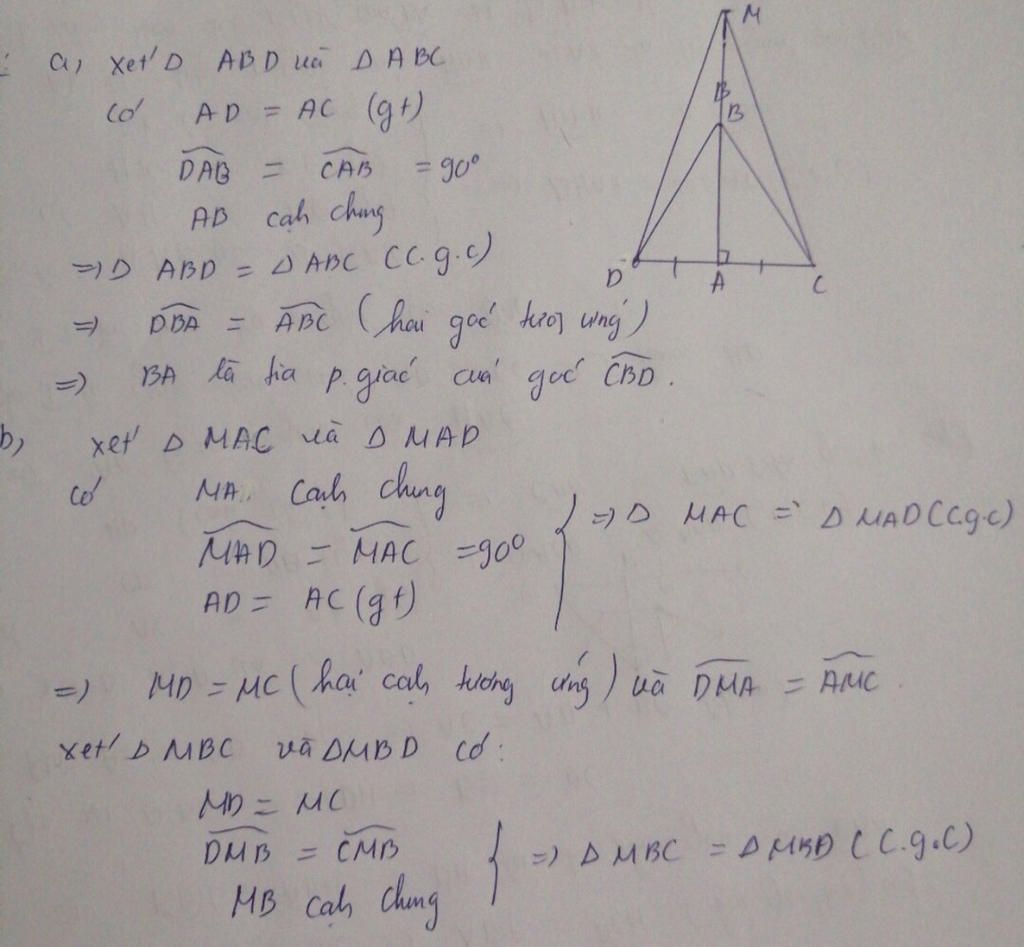 a, xét Δ ABD và Δ ABC
M
có AD = AC (gt)
B
B
DAB = CAB = 90°
AB cạh chung
=> Δ ABD = Δ ABC (c.g.c)
D A C
=> DBA = ABC (hai goć tươg ứng)
=> BA là tia p.giać cuả goć CBD.
b, xét Δ MAC và Δ MAD
có MA cạh chung
MAD = MAC = 90°
AD = AC (gt)
=> Δ MAC = Δ MAD (c.g.c)
=> MD = MC (hai cạh tương ứng) và DMA = AMC.
xét Δ MBC và ΔMBD có:
MD = MC
DMB = CMB
MB cạh chung
=> Δ MBC = Δ MBD (c.g.c)